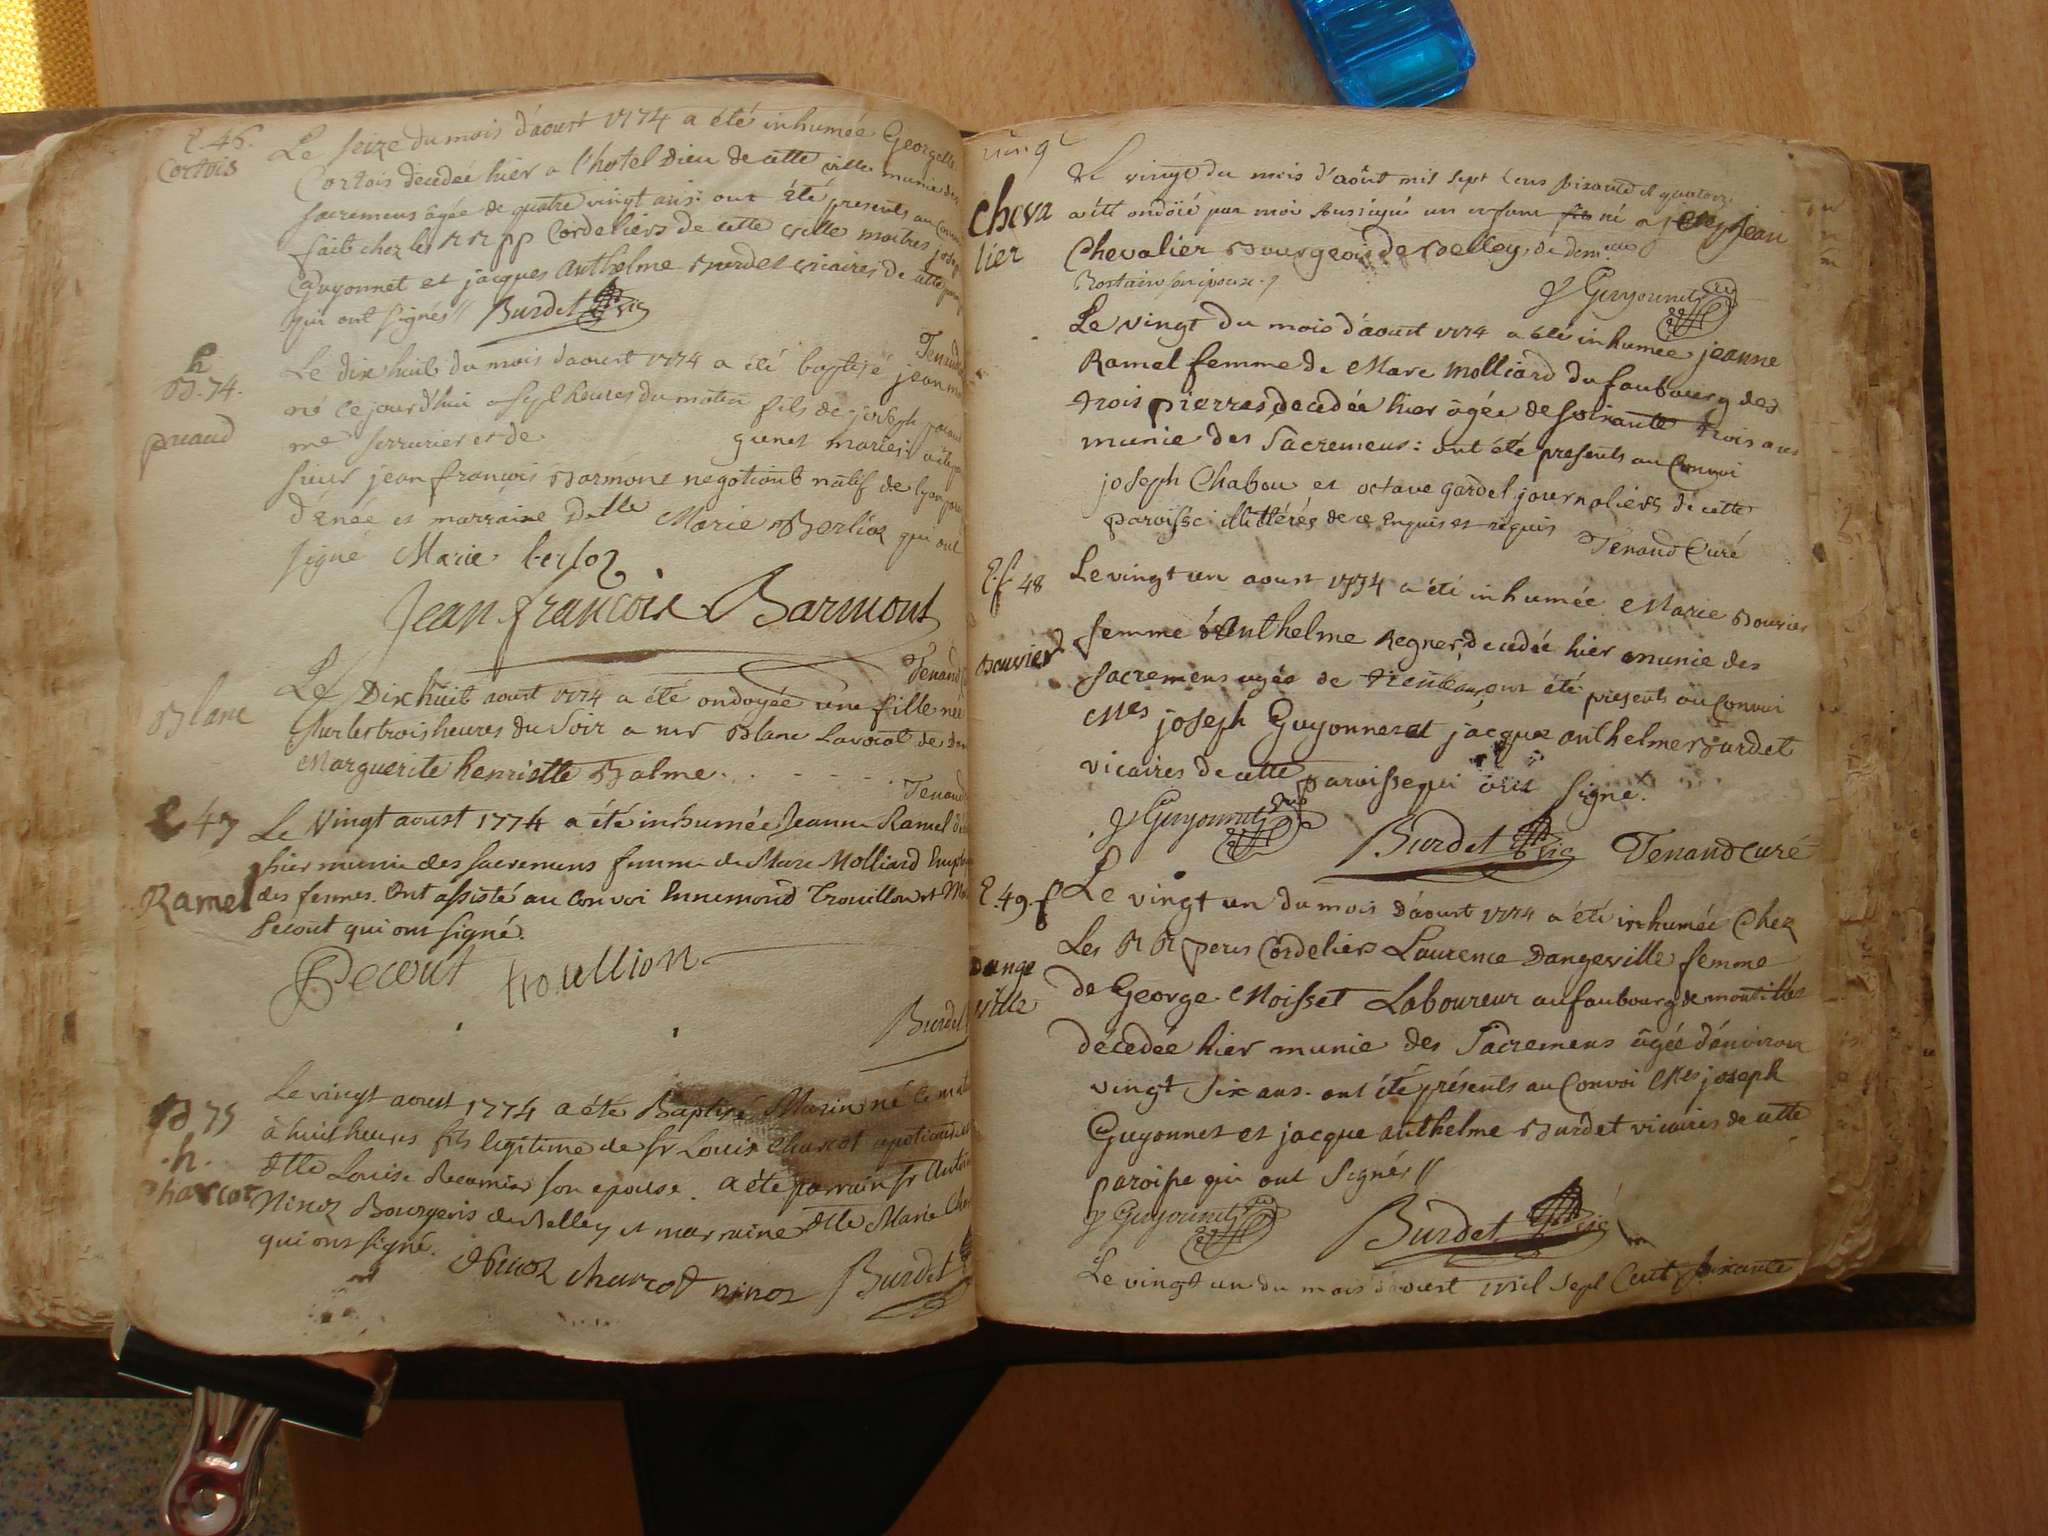 E. 46.
Cortois
Le seize du mois d'aoust 1774 a été inhumée Georgette
Cortois decedée hier a l'hotel Dieu de cette ville munie des
sacremens âgée de quatre vingt ans: ont été presents au Convoi
fait chez les RR pp Cordeliers de cette ville maitres joseph
Guyonnet et jacques Anthelme Burdet vicaires de cette
qui ont signés // Burdet vic
Tenand
h
B. 74.
Le dix huit du mois daoust 1774 a été baptisé jean
né ce jourd'hui a sept heures du matin fils de joseph
me serrurier et de gunet mariés:
sieur jean françois Barmont negotiant natif de lyon
d'Enée et marraine Dlle Marie Berlioz qui ont
signé Marie berlioz
Jean francois Barmont
Tenand
Blanc
Le Dix huit aoust 1774 a été ondoyée une fille née
sur les trois heures du soir a mr Blanc Lavocat
Marguerite henriette Balme
Tenand
E 47
Ramel
Le Vingt aoust 1774 a été inhumée Jeanne Ramel
hier munie des sacremens femme de Marc Molliard
des fermes. Ont assisté au Convoi Ennemond Trouillon et
Decout qui ont signé.
Decout trouillion
Burdet
B 75
.h.
Charcot
Le vingt aoust 1774 a été Baptisé Marin né ce
à huit heures fils legitime de sr Louis Charcot
dlle Louise Recamier son epouse. a été parrain sr
Ninoz Bourgeois de Belley et marraine dlle Marie
qui ont signé.
Ninoz charcot ninoz Burdet
Cheva
lier
Le vingt du mois d'août mil sept cens soixante et quatorze
a été ondoié par moi soussigné un enfant né a Jean
Chevalier Bourgeois de Belley, de demlle
Rostain son épouse.
J Guyonnet
Le vingt du mois d'aoust 1774 a été inhumée jeanne
Ramel femme de Marc Molliard du faubourg des
trois pierres, decedée hier âgée de soixante trois ans
munie des sacremens: ont été presents au Convoi
joseph Chabou et octave gardel journaliers de cette
paroisse illitérés de ce enquis et requis Tenand Curé
E.f. 48
Bouvier
Le vingt un aoust 1774 a été inhumée Marie Bouvier
femme d'Anthelme Regner, decedée hier munie des
sacremens agée de trente ans, ont été presents au Convoi
Mes joseph Guyonnet et jacque anthelme Burdet
vicaires de cette paroisse qui ont signé.
J Guyonnet Burdet vic Tenand Curé
E. 49. f
Dange
ville
Le vingt un du mois d'aoust 1774 a été inhumée Chez
Les RR peres Cordeliers Laurence Dangeville femme
de George Moisset Laboureur au faubourg de
décedée hier munie des sacremens âgée d'environ
vingt six ans. ont été présents au Convoi Mes joseph
Guyonnet et jacque anthelme Burdet vicaires de cette
paroisse qui ont signés //
J Guyonnet Burdet vic
Le vingt un du mois d'aoust mil sept Cent soixante